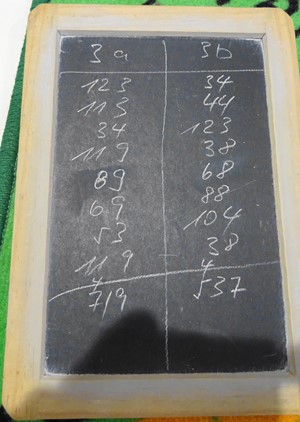 3a 3b
123 34
113 44
34 123
119 38
89 68
69 88
53 104
119 38
4 4
719 537